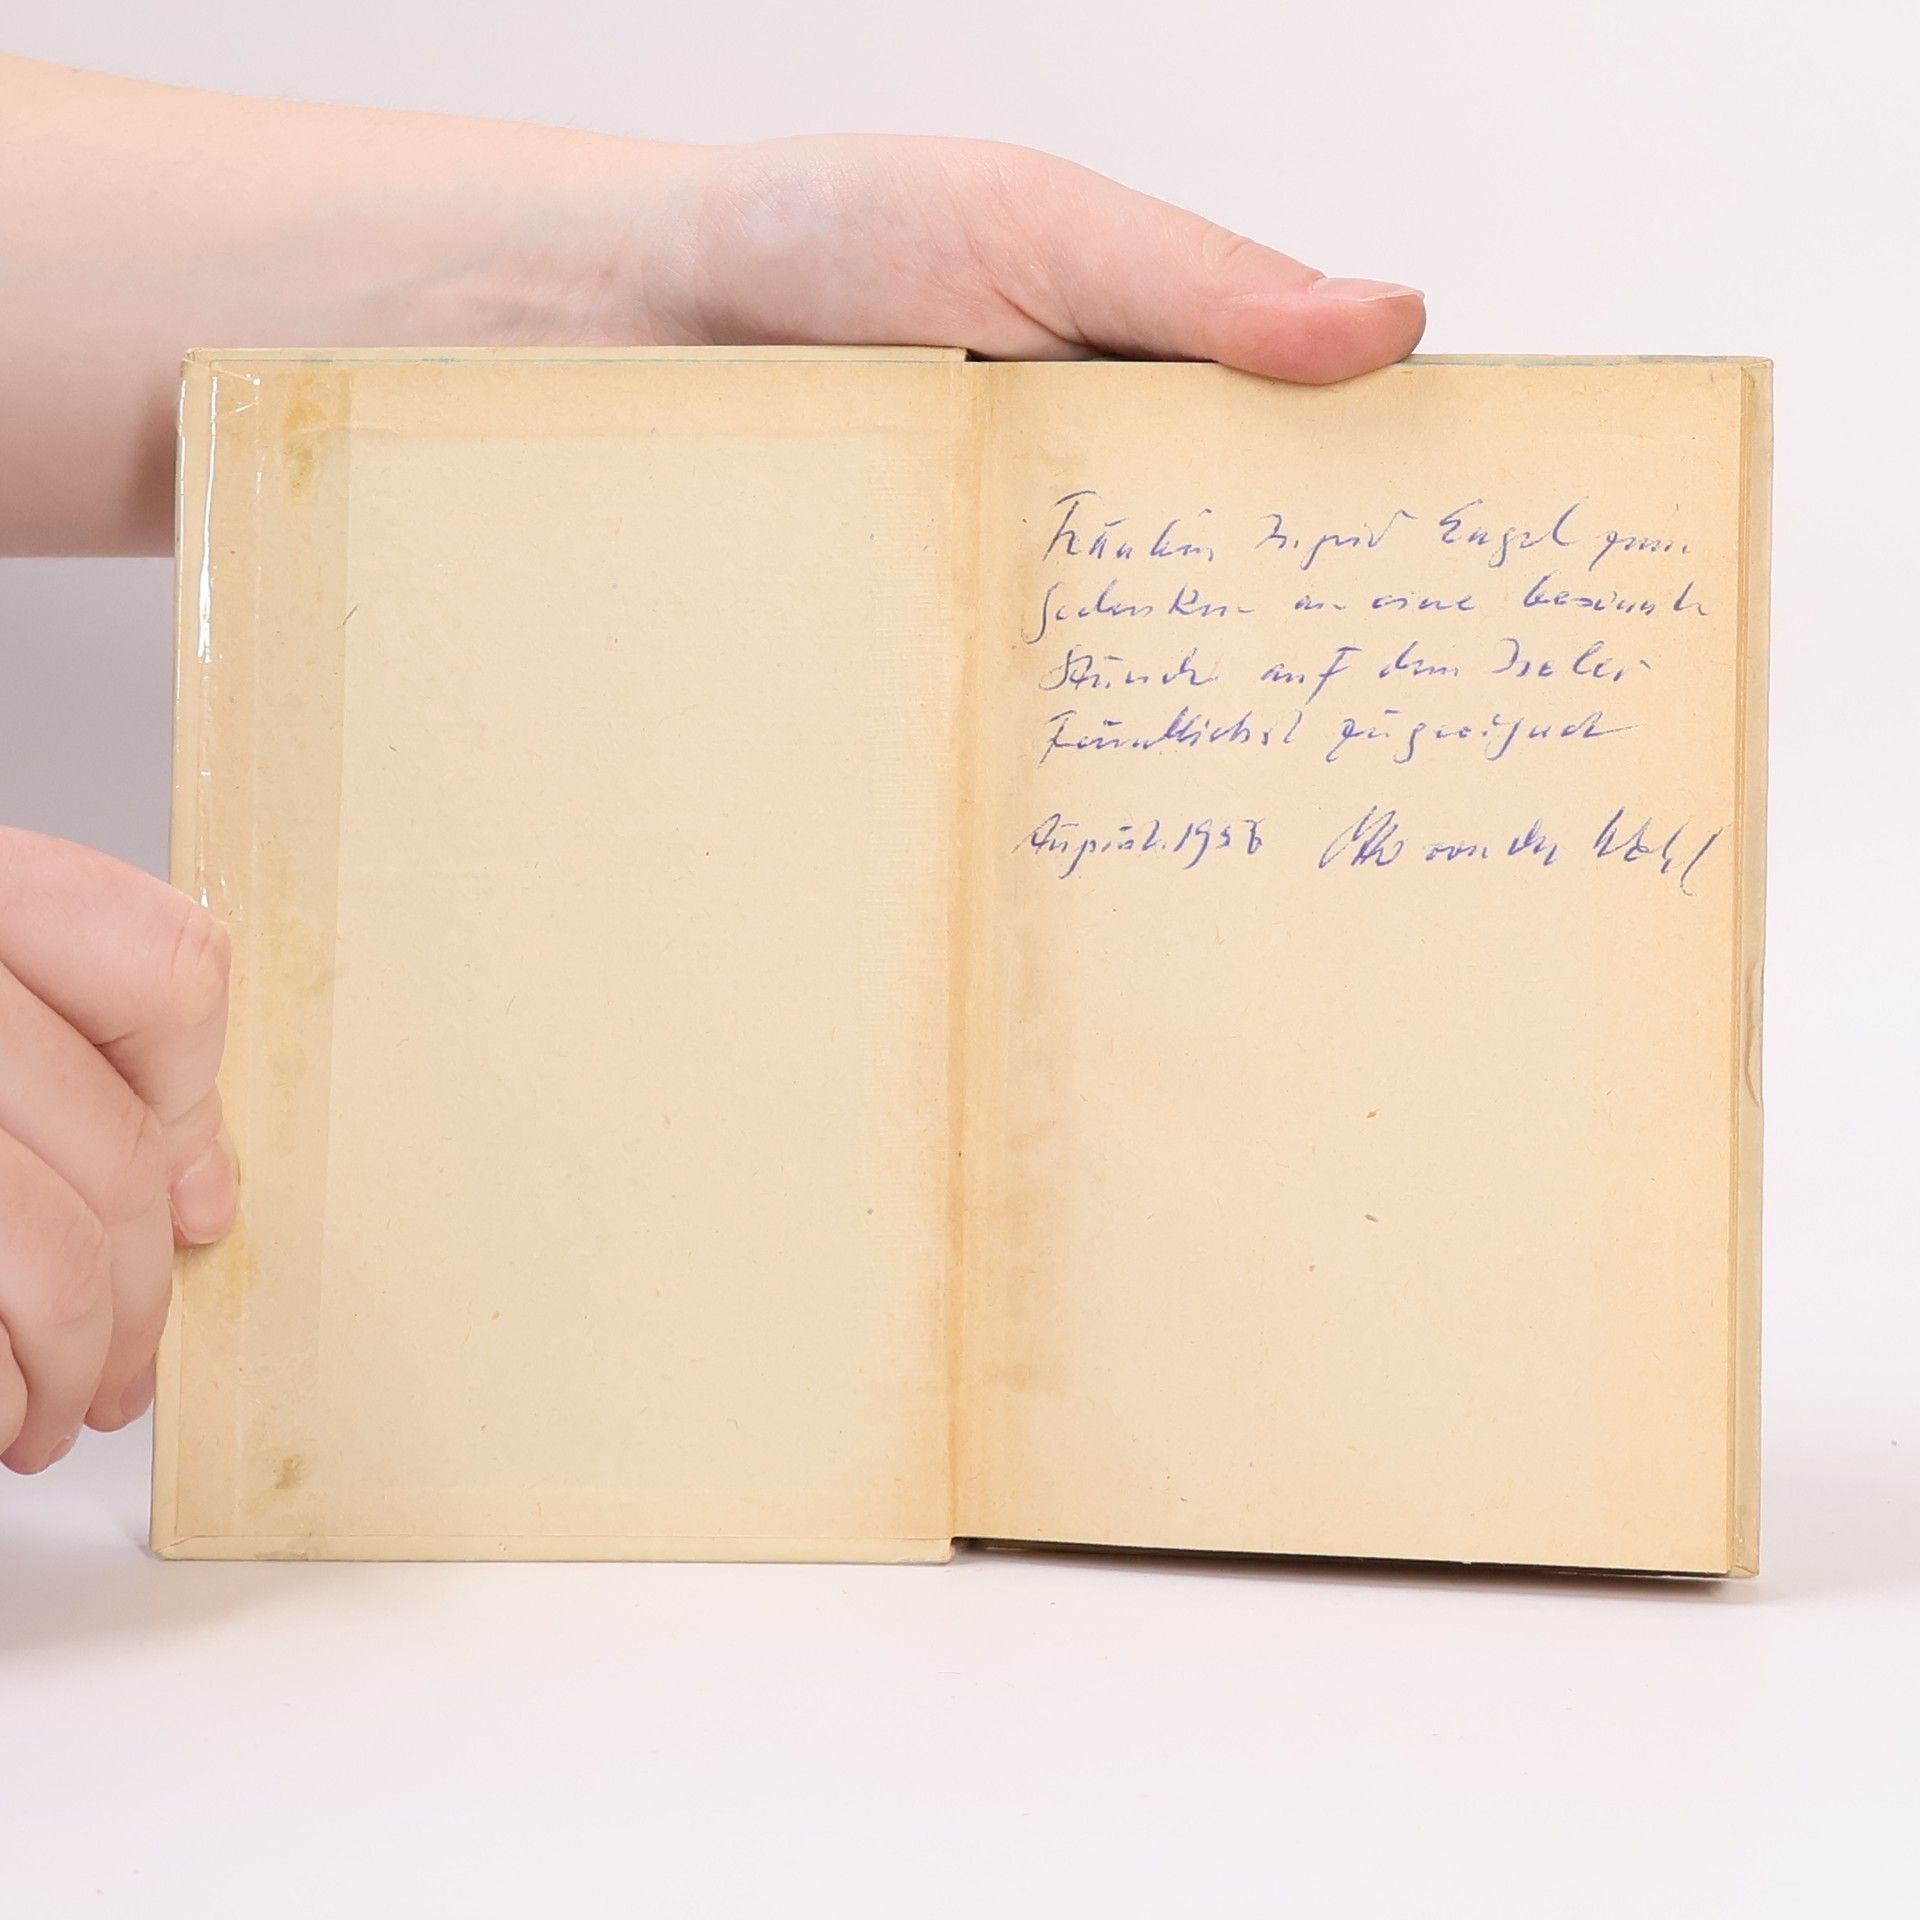 Fräulein Ingrid Engel zum
Gedenken an eine besinnte
Stunde auf dem Iseler
Freundlichst zugeeignet
August 1956 Otto von der Wehl